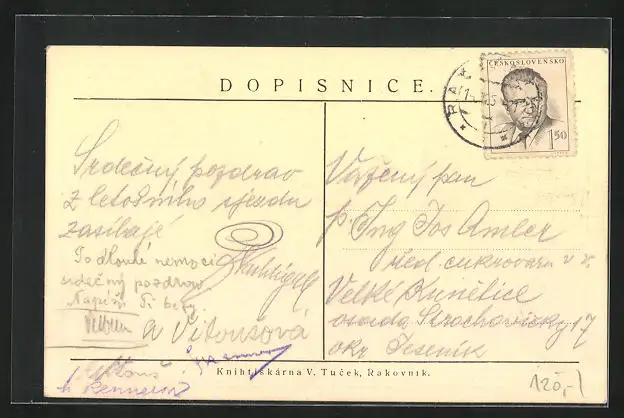 DOPISNICE.
ČESKOSLOVENSKO
1.50
Srdečný pozdrav
z letošního sjezdu
zasílají
Po dlouhé nemoci
srdečný pozdrav
Napíši Ti brzy.
a Vítousová
Vážený pan
p. Ing Jos Amler
řed. cukrovaru v v.
Velké Kunětice
osada Strachovičky 17
okr Jeseník
Knihtiskárna V. Tuček, Rakovník.
120,-